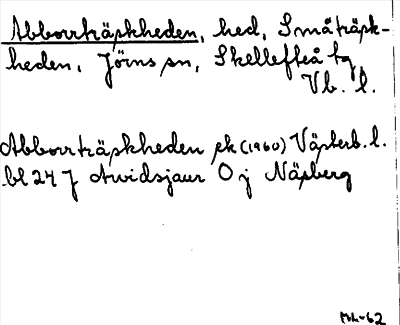 Abborrträskheden, hed, Småträsk-
heden, Jörns sn, Skellefteå tg,
Vb. l.
Abborrträskheden ek (1960) Västerb. l.
bl 24 J Arvidsjaur O j Näsberg
-62